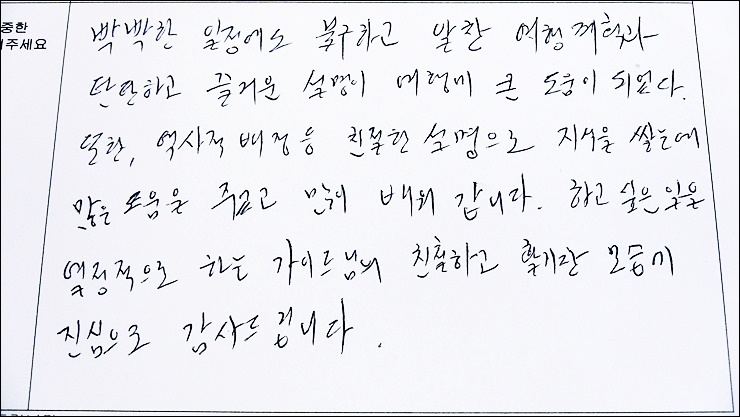 중한
주세요
빡빡한 일정에도 불구하고 알찬 여행계획과
탄탄하고 즐거운 설명이 여행에 큰 도움이 되었다.
또한, 역사적 배경등 친절한 설명으로 지식을 쌓는데
많은 도움을 주었고 많이 배워 갑니다. 하고 싶은 일을
열정적으로 하는 가이드님의 친절하고 활기찬 모습에
진심으로 감사드립니다.